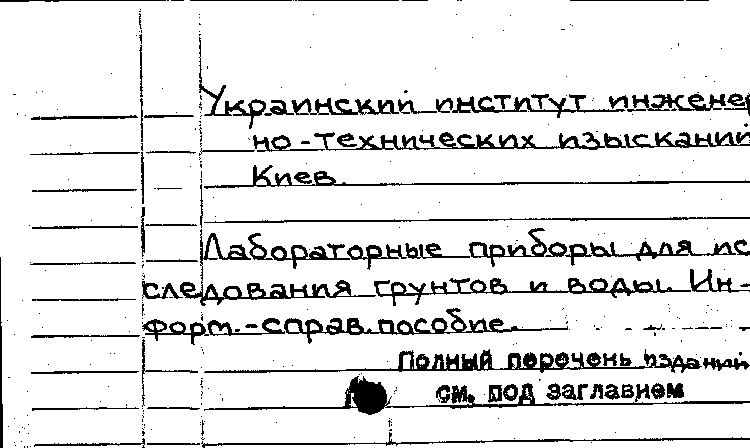 Украинский институт инженер
но-технических изысканий
Киев.
Лабораторные приборы для ис
следования грунтов и воды. Ин-
форм.-справ. пособие.
Полный перечень изданий
см. под заглавием